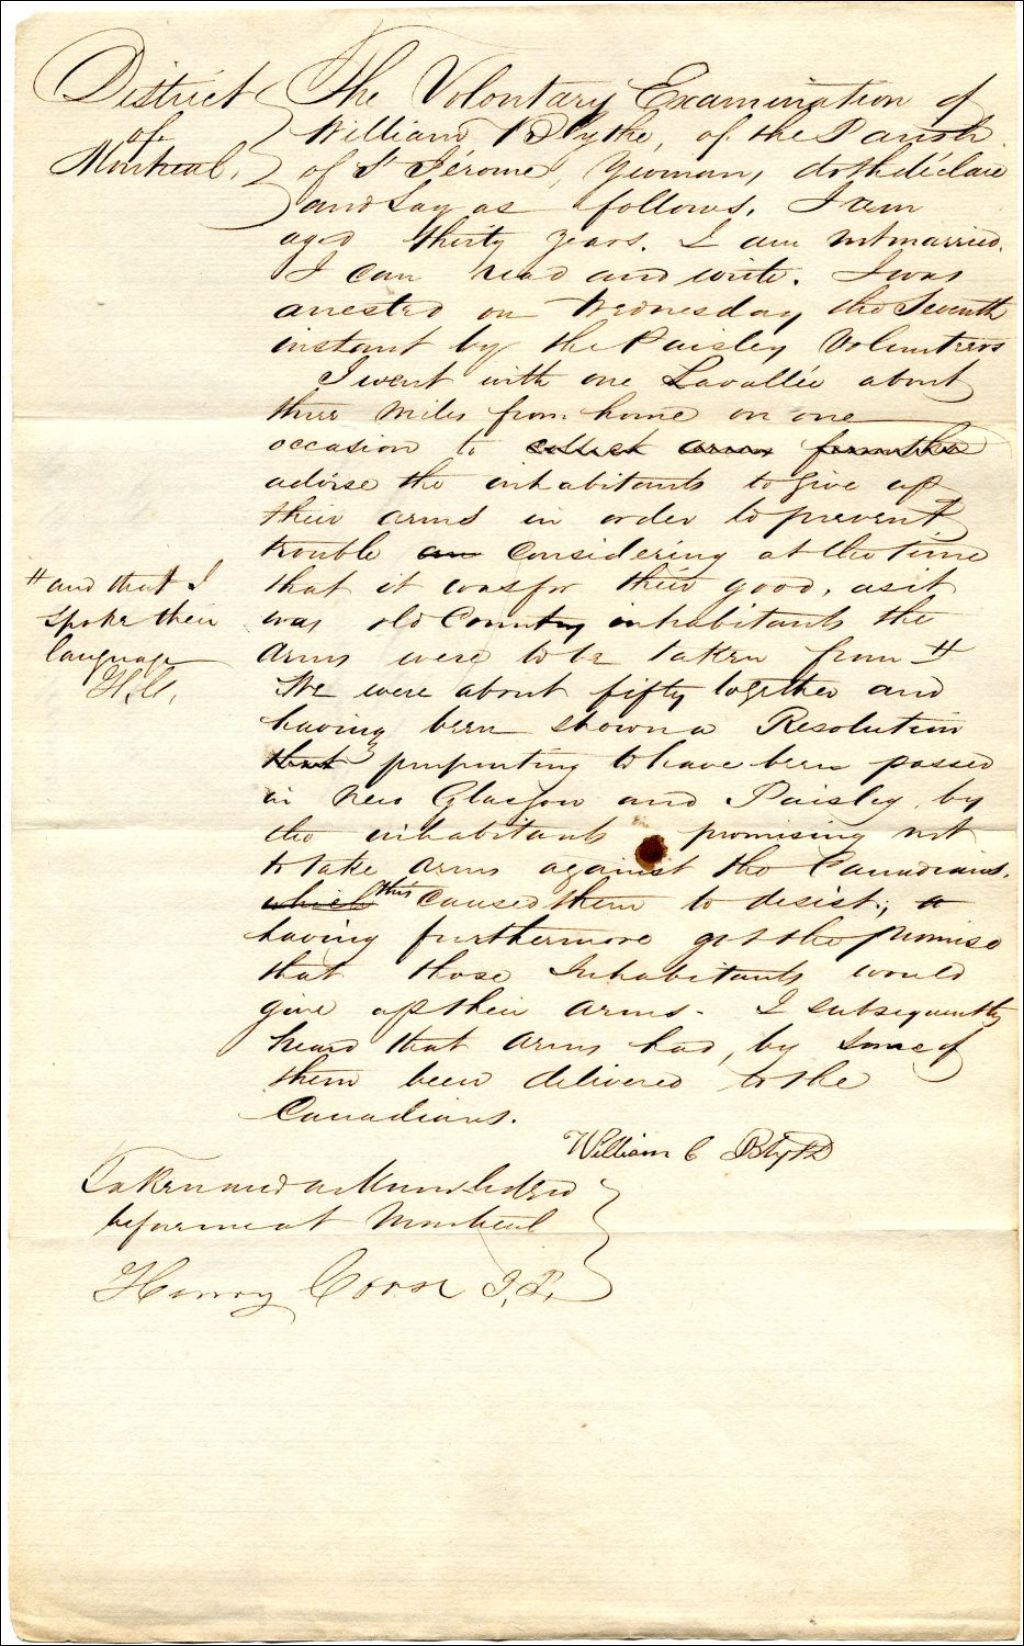 District
of
Montreal.
The Volontary Examination of
William Blythe, of the Parish
of St Jérome, Yeoman, doth déclare
and Say as follows. I am
aged thirty years. I am not married.
I can read and write. I was
arrested on Wednesday the Seventh
instant by the Paisley Volunteers
I went with one Lavallée about
three miles from home on one
occasion to collect arms from the
advise the inhabitants to give up
their arms in order to prevent
trouble an Considering at the time
that it was for their good, as it
was old Country inhabitants the
arms were to be taken from #
# and that I
spoke their
language
H.C.
We were about fifty together and
having been shown a Resolution
that purporting to have been passed
in New Glasgow and Paisley by
the inhabitants promising not
to take arms against the Canadians.
which this caused them to desist; a
having furthermore got the promise
that those Inhabitants would
give up their arms. I subsequently
heard that arms had, by some of
them been delivered to the
Canadians.
William C Blyth
Taken and acknowledged
before me at Montreal
Henry Corse J.P.